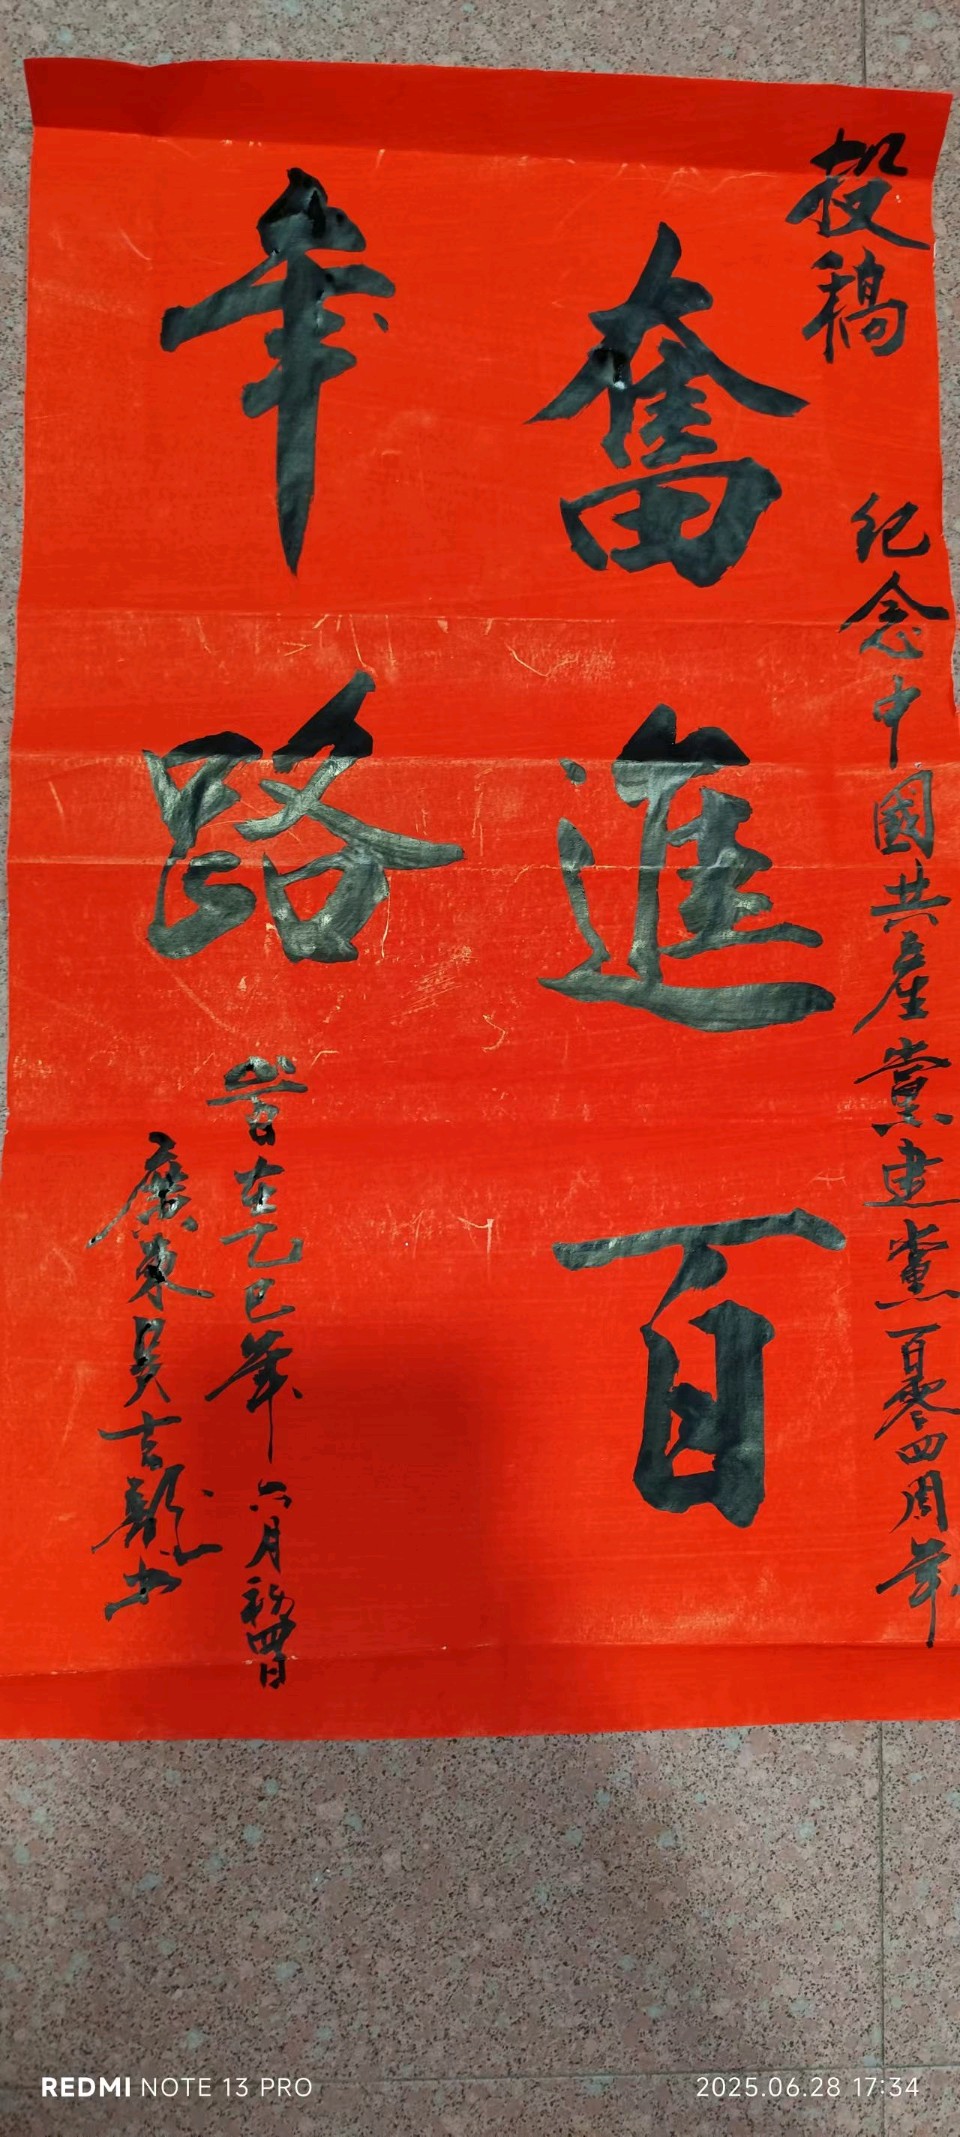 投稿
纪念中國共產黨建黨百零四周年
奮進百
年路
時在乙巳年六月初四日
廣東吴吉龍书
REDMI NOTE 13 PRO
2025.06.28 17:34